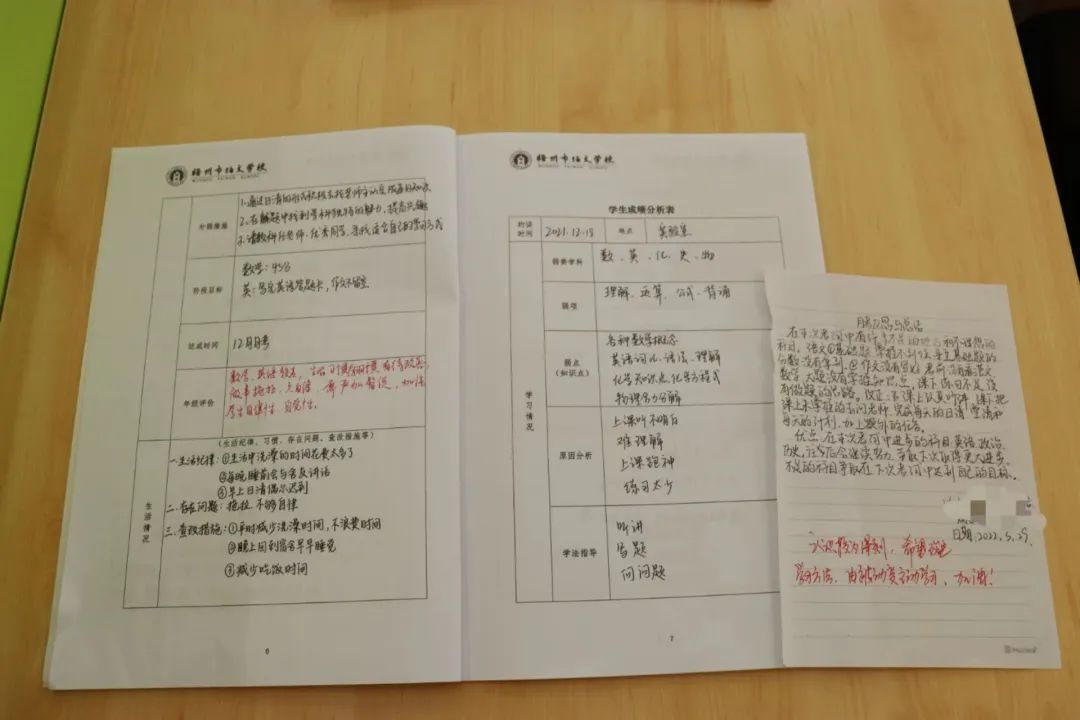 梧州市培文学校
补弱措施
1.通过日清的形式积极去找老师主动完成每日知识
2.在解题中找到学科独特的魅力，提高兴趣
3.请教科任老师、优秀同学，寻找适合自己的学习方式
阶段目标
数学：45分
英：写完英语答题卡，作文不留空
达成时间
12月月考
年级评价
数学、英语较差，生活习惯有待改善，
做事拖拉，欠自律，需严加督促，加强
学生自律性、自觉性。
生活情况
（生活纪律、习惯、存在问题、查改措施等）
一.生活纪律：①生活中洗澡的时间花费太多了
②每晚睡前会与舍友讲话
③早上日清偶尔迟到
二.存在问题：拖拉、不够自律
三.查改措施：①平时减少洗澡时间，不浪费时间
②晚上回到宿舍早早睡觉
③减少吃饭时间
6
梧州市培文学校
学生成绩分析表
约谈时间
2021.12.13
地点
实验室
弱势学科
数、英、化、史、物
弱项
理解、运算、公式、背诵
学习情况
弱点（知识点）
各种数学概念
英语词汇、语法、理解
化学知识点、化学方程式
物理多力分解
原因分析
上课听不明白
难理解
上课跑神
练习太少
学法指导
听讲
写题
问问题
7
月考反思与总结
在本次考试中有许多不足的地方和不理想的
科目。语文①基础题掌握不到位，导致基础题的
分数没有拿到，②作文没有写好，考前没有看范文
数学，大题没有掌握知识点，课下练习不足，没
有做题的思路。改正：①课上认真听讲，课下把
课上未掌握的去问老师，完成每天的日清，坚清和
每天的计划，加上额外的任务。
优点：在本次考试中进步的科目英语、政治、
历史，往后会继续努力，争取下次取得更大进步。
不足的科目争取在下次考试中达到自己的目标。
日期：2022.5.29.
认识较为深刻，希望改进
学习方法，由被动变主动学习，加油！